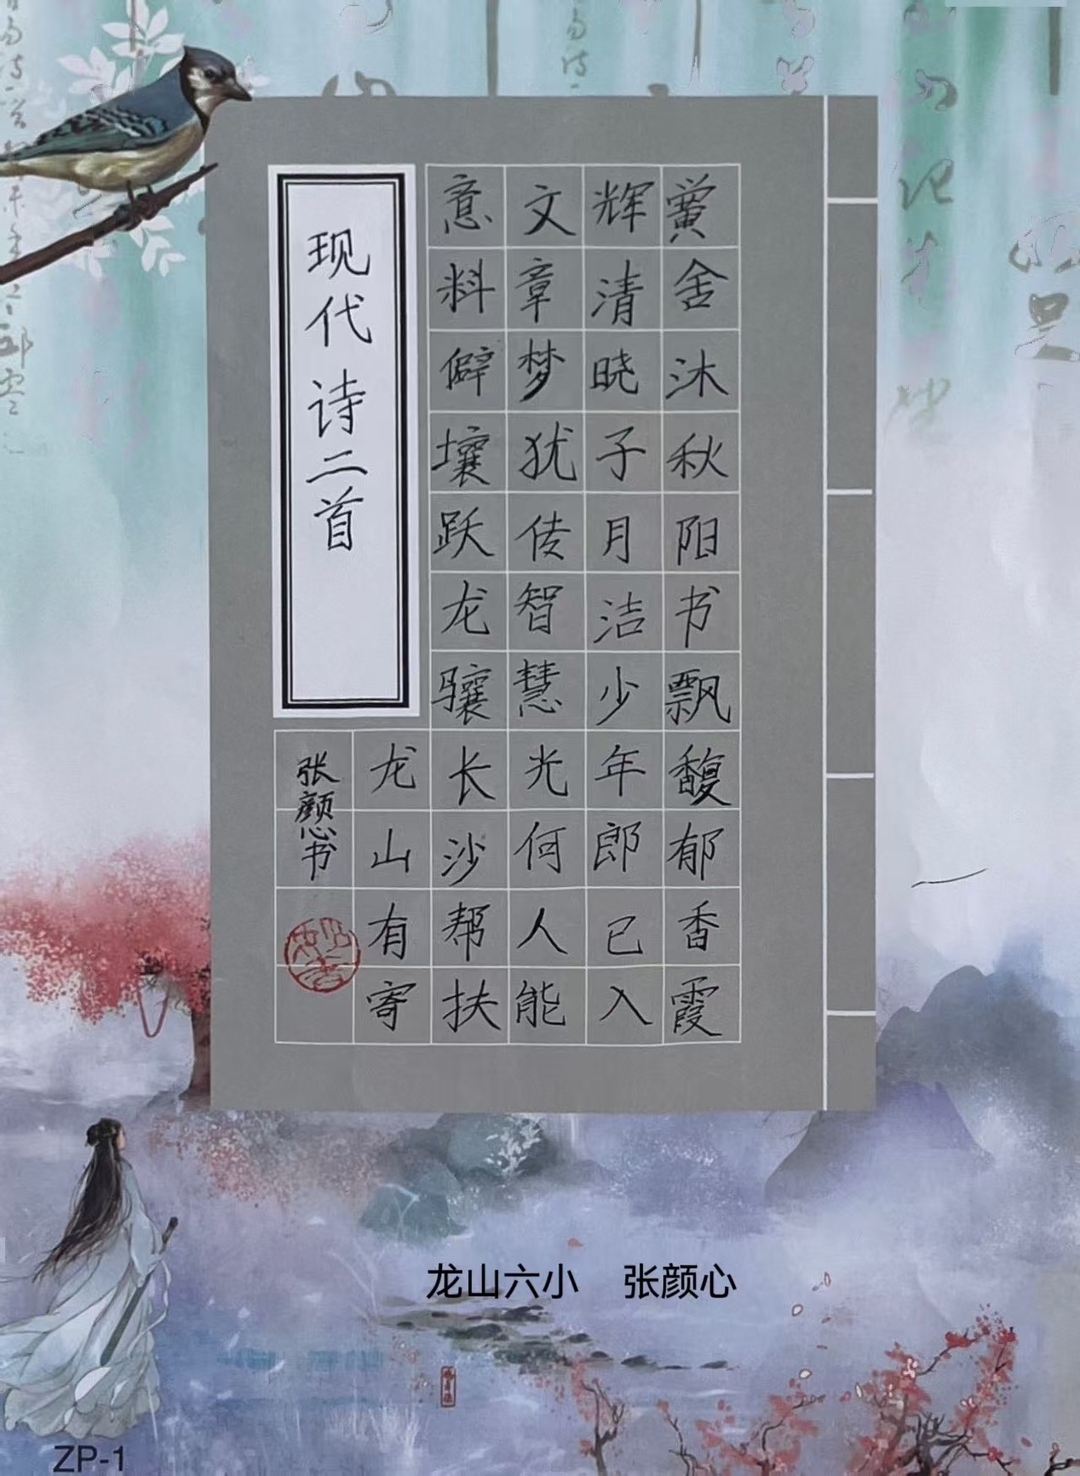 黉舍沐秋阳书飘馥郁香霞
辉清晓子月洁少年郎已入
文章梦犹传智慧光何人能
意料僻壤跃龙骧长沙帮扶
龙山有寄
现代诗二首
张颜心书
龙山六小 张颜心
ZP-1